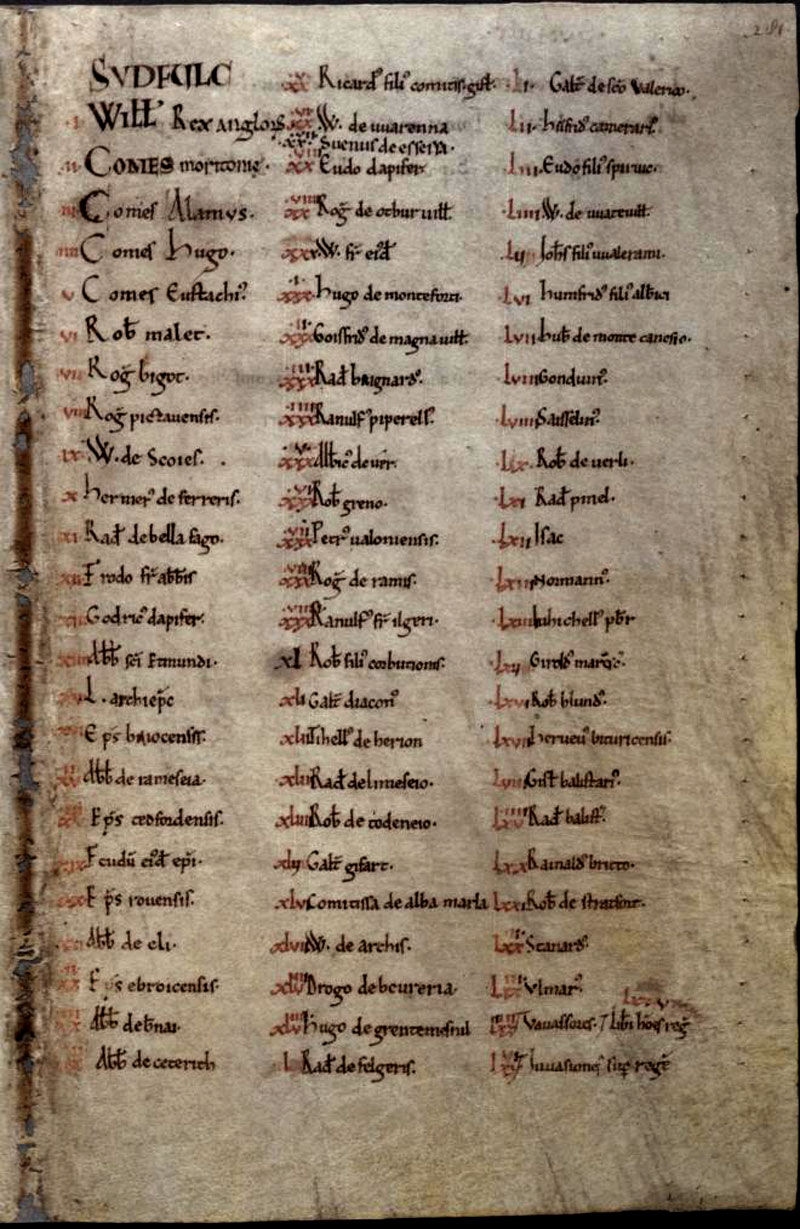 281
SVDFULC
i Willꝰ Rex Angloꝝ
ii COMES moritonie.
iii Comes Alanus.
iiii Comes Hugo.
v Comes Eustachiꝰ
vi Rob malet.
vii Rog bigot.
viii Rog pictauensis.
ix W. de Scoies.
x hermerꝰ de ferreris.
xi Rad de bella fago.
xii Frodo fr abbis
xiii Godricꝰ dapifer.
xiiii Abb sci Emundi.
xv L. archiepc
xvi Eps baiocensis.
xvii Abb de rameseia.
xviii Eps tedfordensis.
xix Feudu eid epi.
xx Eps rouensis.
xxi Abb de eli.
xxii Eps ebroicensis.
xxiii Abb de bnai.
xxiiii Abb de ceterith
xxv Ricardꝰ filiꝰ comitis gisl.
xxvi W. de uuarenna
xxvii Suenus de essessa.
xxviii Eudo dapifer
xxix Rog de otburuill.
xxx W. fr eid
xxxi hugo de monteforti.
xxxii Goisfridꝰ de magna uill.
xxxiii Rad baignardꝰ.
xxxiiii Ranulfꝰ piperellꝰ.
xxxv Albicꝰ de uer.
xxxvi Rob greno.
xxxvii Petrꝰ ualoniensis.
xxxviii Rog de ramis.
xxxix Ranulfꝰ fr ilgeri.
xl Rob filiꝰ corbutionis.
xli Galt diaconꝰ
xlii Tihellꝰ de herion
xliii Rad de limeseio.
xliiii Rob de todeneio.
xlv Galt gifart.
xlvi Comitissa de alba marla
xlvii W. de archis.
xlviii Drogo de beureria.
xlix hugo de grentemesnil
l Rad de felgeris.
li Galt de sco Valerico.
lii hunfridꝰ camerariꝰ.
liii Eudo filiꝰ spiruic.
liiii W. de uuateuill.
lv Johs filiꝰ uualerami.
lvi humfridꝰ filiꝰ albici
lvii hub de monte canesio.
lviii Gonduinꝰ.
lviiii Sasselinꝰ.
lx Rob de uerli.
lxi Rad pinel.
lxii Isac
lxiii Normannꝰ.
lxiiii Iuhichellꝰ pbr
lxv Giroldꝰ
lxvi Rob blundꝰ.
lxvii herueuꝰ bituricensis.
lxviii Gislt balistariꝰ.
lxix Rad balistꝰ.
lxx Rainaldꝰ brito.
lxxi Rob de stratfort.
lxxii Stanardꝰ.
lxxiii Vlmarꝰ.
Vauassores. libi hoes reg
Inuasiones sup rege